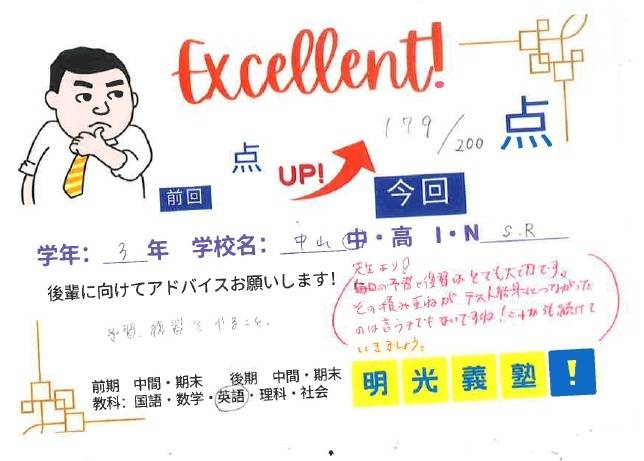 Excellent!
179/200 点
点 UP!
前回 今回
学年: 3 年 学校名: 中山 中・高 I・N S.R
後輩に向けてアドバイスお願いします!
予習、復習をやること。
先生より!
毎日の予習と復習はとても大切です。
その積み重ねが、テスト結果につながった
のは言うまでもないですね!これからも続けて
いきましょう。
前期 中間・期末 後期 中間・期末
教科: 国語・数学・英語・理科・社会
明光義塾!